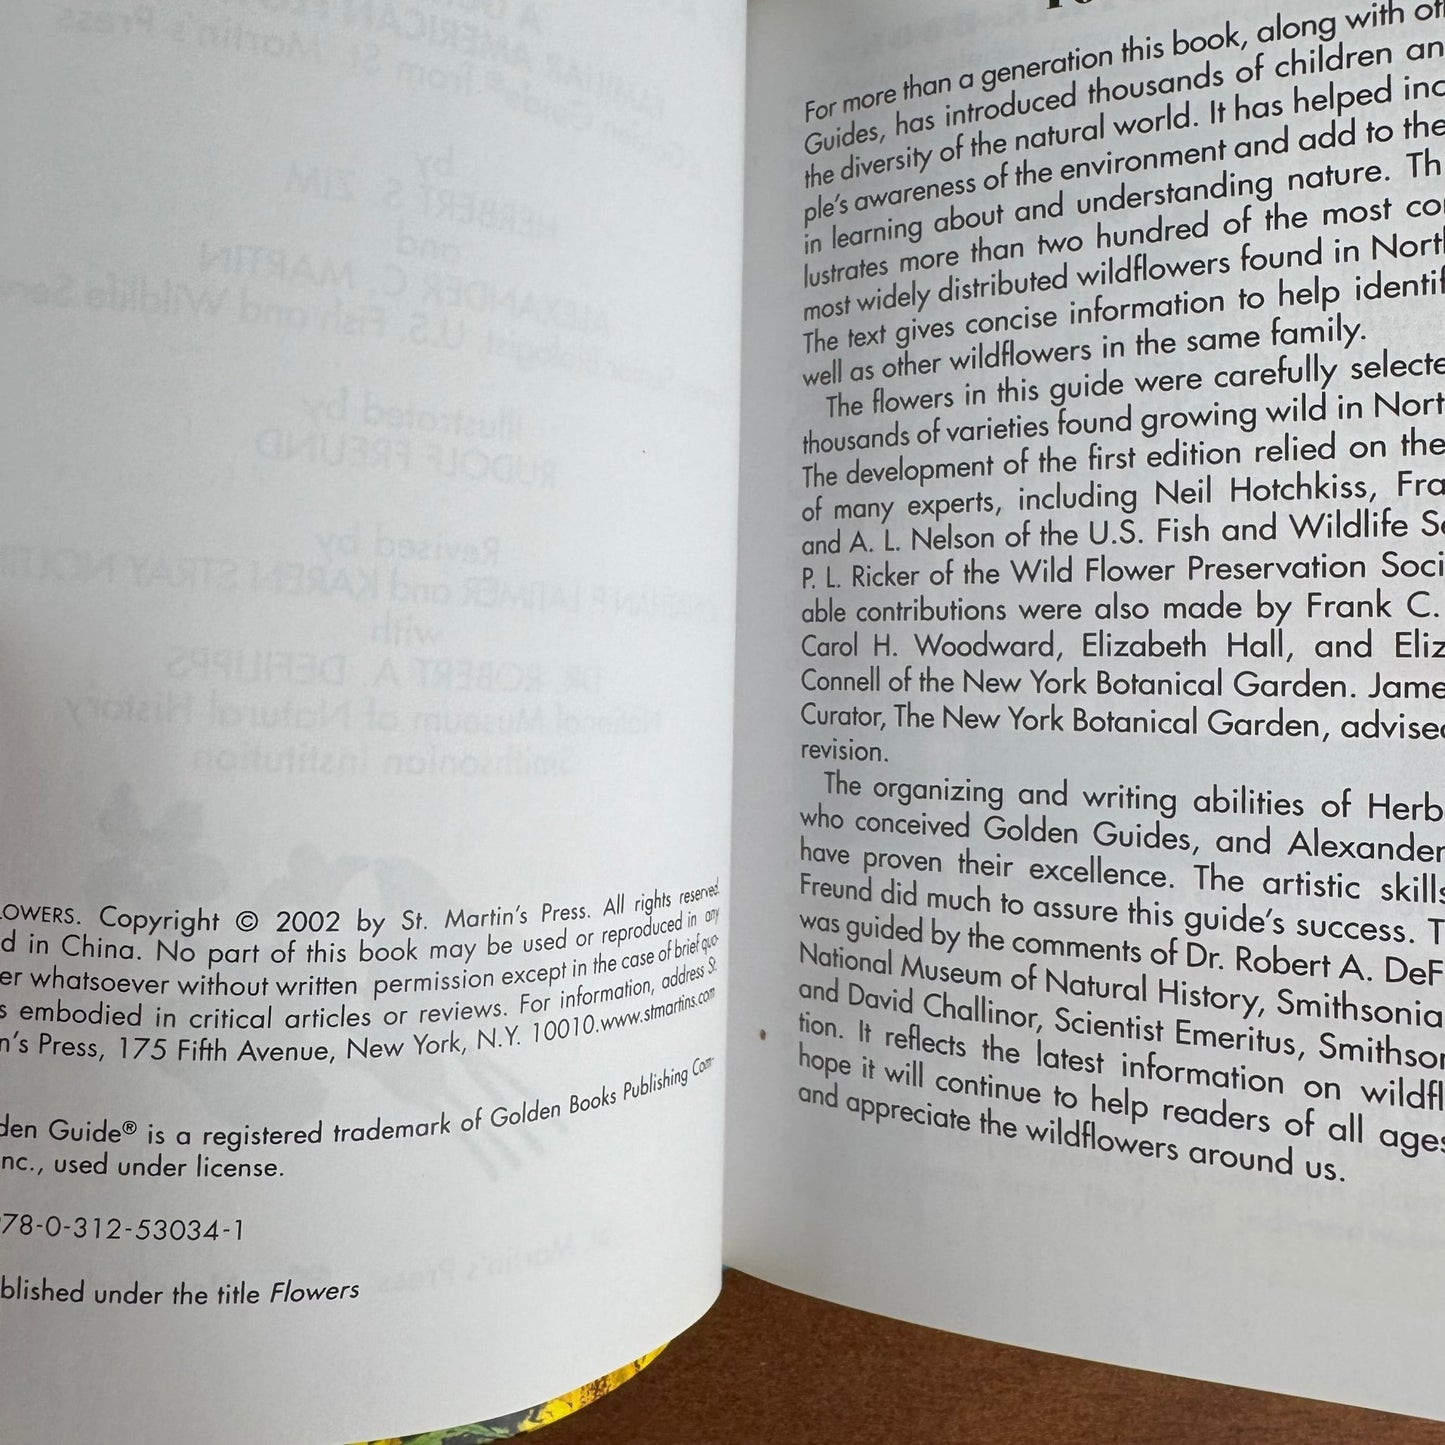 LOWERS. Copyright © 2002 by St. Martin's Press. All rights reserved.
d in China. No part of this book may be used or reproduced in any
er whatsoever without written permission except in the case of brief quo-
s embodied in critical articles or reviews. For information, address St.
n's Press, 175 Fifth Avenue, New York, N.Y. 10010.www.stmartins.com
den Guide® is a registered trademark of Golden Books Publishing Com-
nc., used under license.
78-0-312-53034-1
blished under the title Flowers
For more than a generation this book, along with ot
Guides, has introduced thousands of children an
the diversity of the natural world. It has helped inc
ple's awareness of the environment and add to the
in learning about and understanding nature. Th
lustrates more than two hundred of the most co
most widely distributed wildflowers found in Nort
The text gives concise information to help identif
well as other wildflowers in the same family.
The flowers in this guide were carefully selecte
thousands of varieties found growing wild in Nort
The development of the first edition relied on the
of many experts, including Neil Hotchkiss, Fra
and A. L. Nelson of the U.S. Fish and Wildlife Se
P. L. Ricker of the Wild Flower Preservation Soci
able contributions were also made by Frank C.
Carol H. Woodward, Elizabeth Hall, and Eliz
Connell of the New York Botanical Garden. Jame
Curator, The New York Botanical Garden, advised
revision.
The organizing and writing abilities of Herb
who conceived Golden Guides, and Alexander
have proven their excellence. The artistic skills
Freund did much to assure this guide's success. T
was guided by the comments of Dr. Robert A. DeF
National Museum of Natural History, Smithsonia
and David Challinor, Scientist Emeritus, Smithson
tion. It reflects the latest information on wildfl
hope it will continue to help readers of all ages
and appreciate the wildflowers around us.